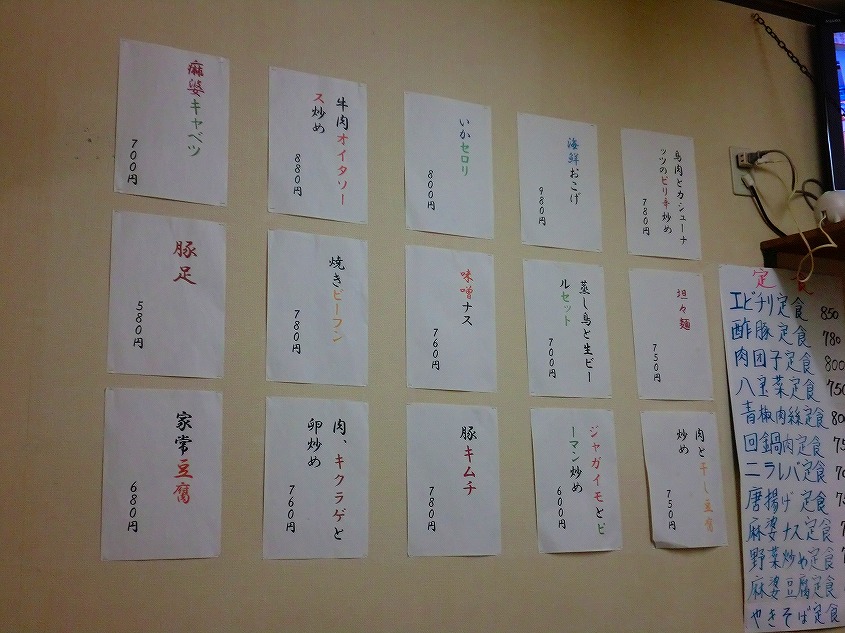 麻婆キャベツ
700円
牛肉オイタソー
ス炒め
880円
いかセロリ
800円
海鮮おこげ
980円
鳥肉とカシューナ
ッツのピリ辛炒め
780円
豚足
580円
焼きビーフン
780円
味噌ナス
760円
蒸し鳥と生ビー
ルセット
700円
坦々麺
750円
家常豆腐
680円
肉、キクラゲと
卵炒め
760円
豚キムチ
780円
ジャガイモとピ
ーマン炒め
600円
肉と干し豆腐
炒め
750円
定食
エビチリ定食 850
酢豚定食 780
肉団子定食 800
八宝菜定食 750
青椒肉絲定食
回鍋肉定食
ニラレバ定食
唐揚げ定食
麻婆ナス定食
野菜炒め定食
麻婆豆腐定食
やきそば定食